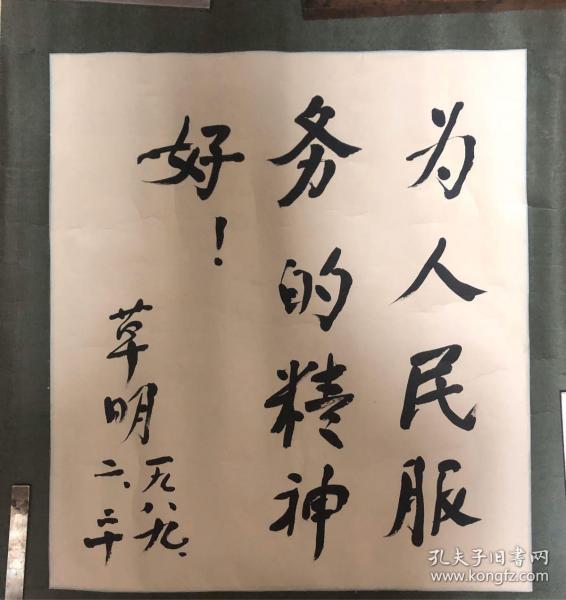 为人民服
务的精神
好！
草明
一九八九、
二、二十
孔夫子旧书网
www.kongfz.com